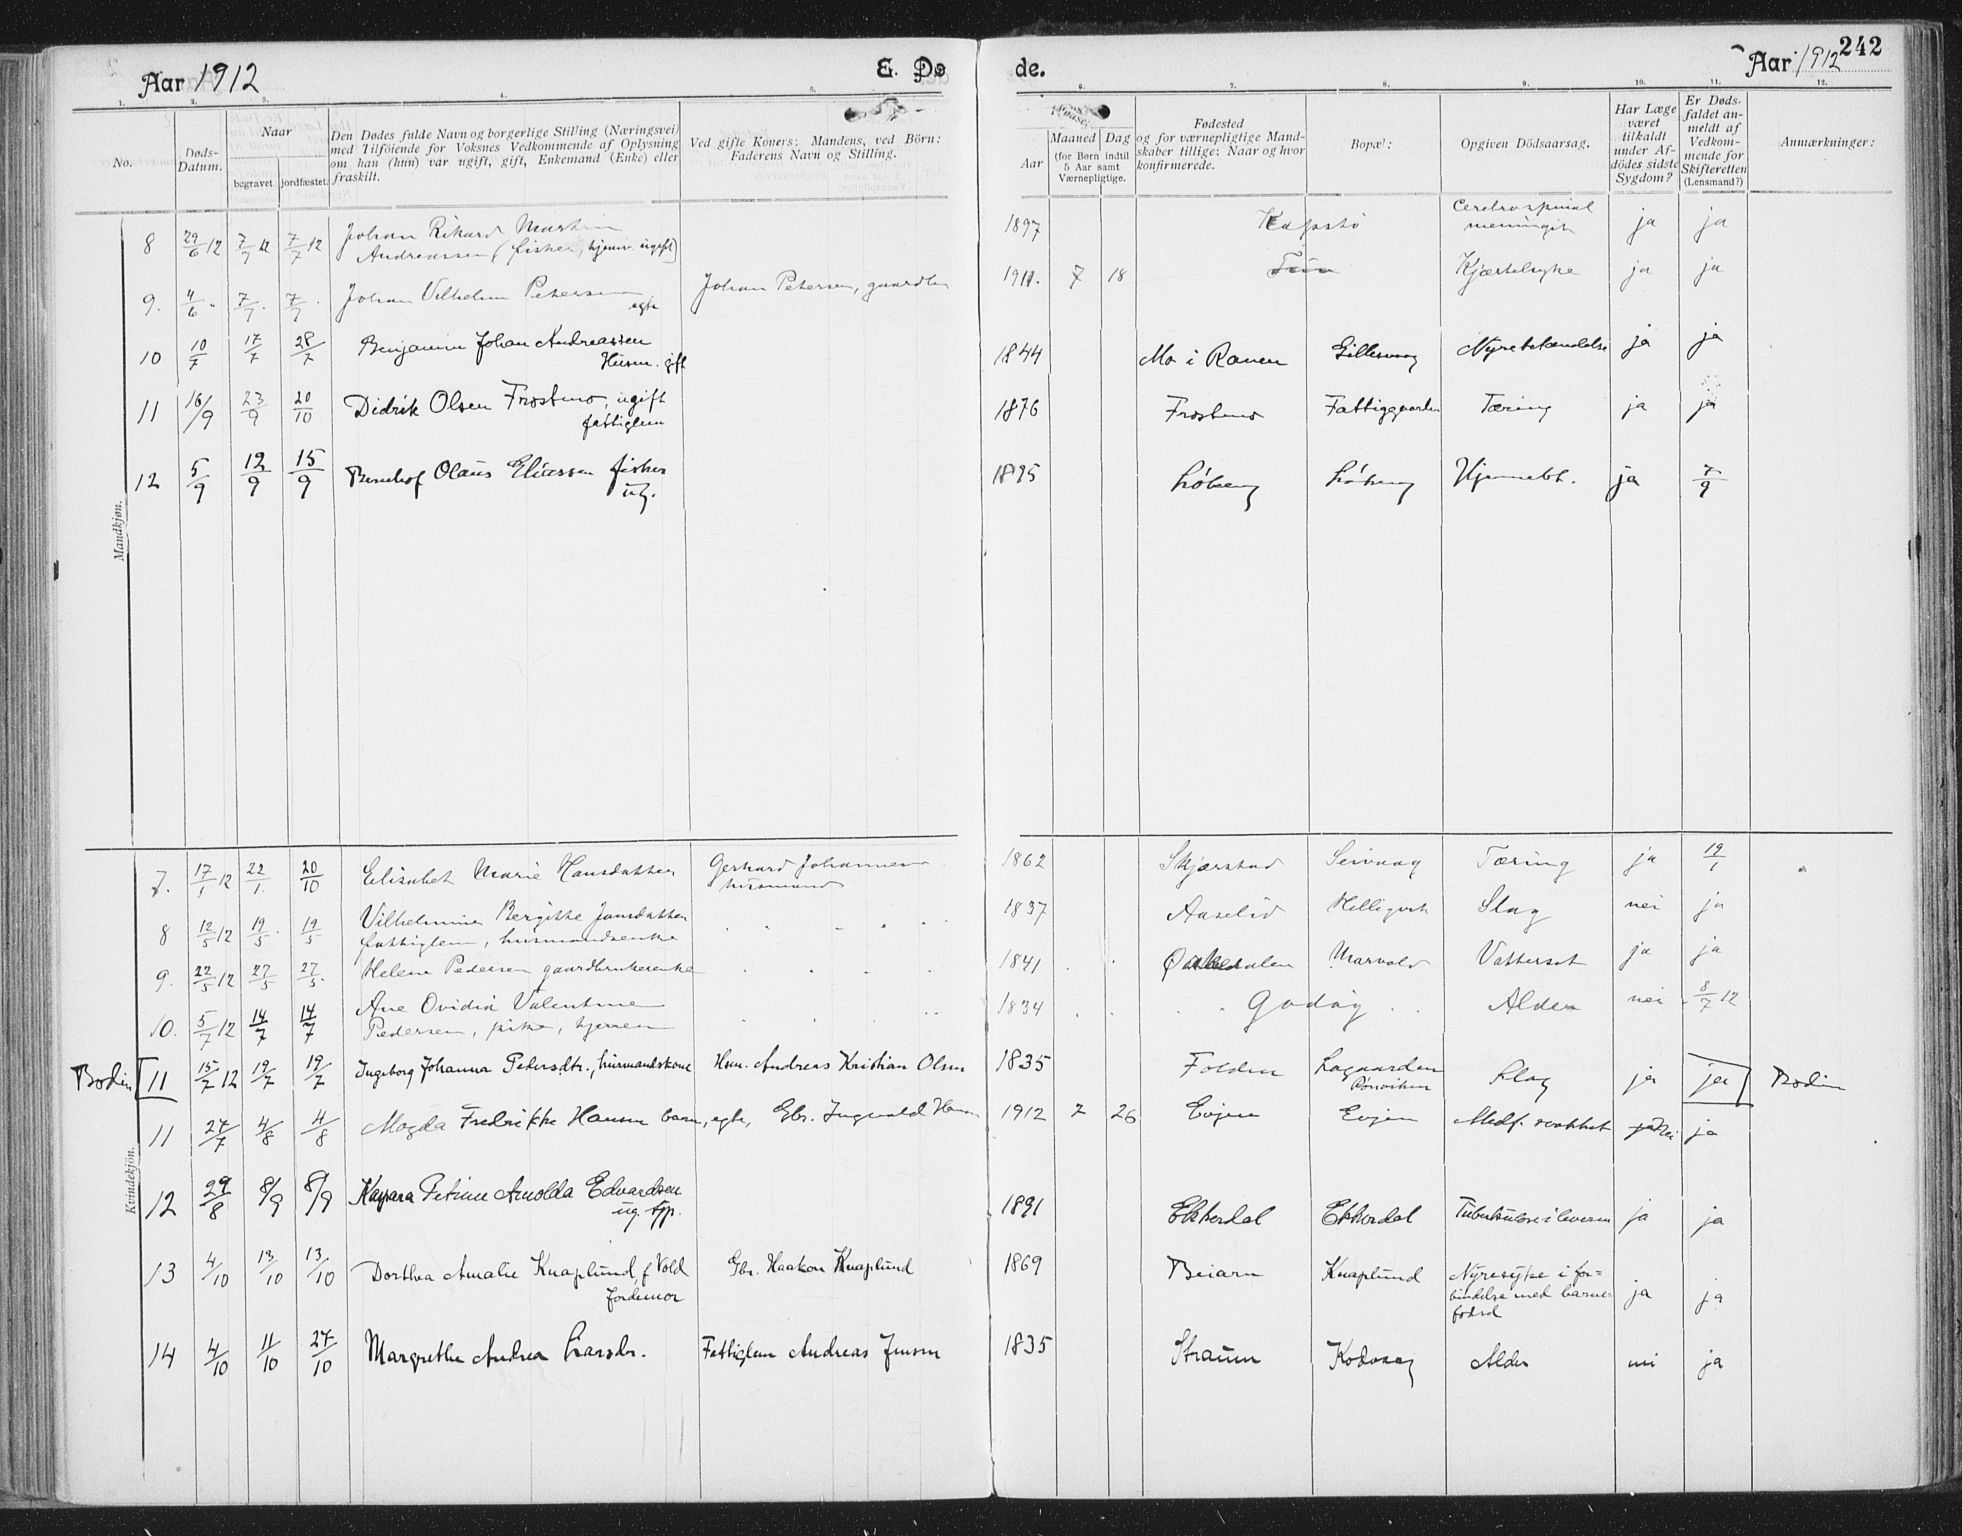 Aar 1912
E. Døde.
Aar 1912
242
1. 2. 3. 4. 5. 6. 7. 8. 9. 10. 11. 12.
No.
Døds-Datum.
Naar
begravet. jordfæstet.
Den Dødes fulde Navn og borgerlige Stilling (Næringsvei)
med Tilföiende for Voksnes Vedkommende af Oplysning
om han (hun) var ugift, gift, Enkemand (Enke) eller
fraskilt.
Ved gifte Koners: Mandens, ved Börn:
Faderens Navn og Stilling.
Aar
Maaned Dag
(for Børn indtil
5 Aar samt
Værnepligtige.
Fødested
og for værnepligtige Mand-
skaber tillige: Naar og hvor
konfirmerede.
Bopæl:
Opgiven Dödsaarsag.
Har Læge
været
tilkaldt
under Af-
dödes sidste
Sygdom?
Er Døds-
faldet an-
meldt af
Vedkom-
mende for
Skifteretten
(Lensmand?)
Anmærkninger:
Mandkjøn.
8 29/6 12 7/7 12 7/7 12 Johan Rikard Martin 1897 Cerebrospinal ja ja
Andreassen (fisker, hjemv. ugift) meningit
9. 4/6 " 7/7 . 7/7 . Johan Vilhelm Petersen Johan Petersen, 1911. 7 18 Kjertelsyke ja ja
egte
10 10/7 17/7 28/7 Benjamin Johan Andreassen 1844 Mo i Ranen Gillesvaag Nyrebetændelse ja ja
Husm. gift
11 16/9 23/9 20/10 Didrik Olsen Frostmo, ugift 1876 Frostmo Fattiggaarden Tæring ja ja
fattiglem
12 5/9 12/9 15/9 Olaus Eliassen fisker 1895 ja 7/9
ug.
Kvindekjön.
7. 17/1 12 22/1. 20/10 Elisabet Marie Hansdatter Gerhard Johannesen 1862 Skjærstad Seivaag Tæring ja 19/1
husmand
8 12/5 12 19/5 . 19/5 Vilhelmine Bergitte Jonsdatter 1837 Aaselid Slag nei ja
fattiglem, husmandsenke
9. 22/5 12 27/5 27/5. Helene Pedersen gaardbrukerenke 1841 Marvold Vattersot ja ja
10. 5/7 12 14/7 14/7 Ane Ovidia Valentine 1834 Godøy Alder nei 8/7 12
Pedersen, pike,
Bodin 11 15/7 12 19/7 19/7 Ingeborg Johanna Pedersdtr., husmandskone Husm. Andreas Kristian Olsen 1835 Folden Løgaarden Slag ja ja Bodin
Rønviken
11 27/7 4/8 4/8 Magda Fredrikke Hansen barn, egte, Gbr. Ingvald Hansen 1912 7 26 Evjen Evjen Medf. svakhet nei ja
12 29/8 8/9 8/9 Petrine Arnolda Edvardsen 1891 Ekkerdal Ekkerdal Tuberkulose i leveren ja ja
ug.
13 4/10 13/10 13/10 Dorthea Amalie Knaplund, f. Vold Gbr. Haakon Knaplund 1869 Beiarn Knaplund Nyresyke i for=
jordemor bindelse med barne- ja ja
fødsel
14 4/10 11/10 27/10 Margrethe Andrea Larsdr. Fattiglem Andreas Jensen 1835 Straum Kodvaag Alder nei ja